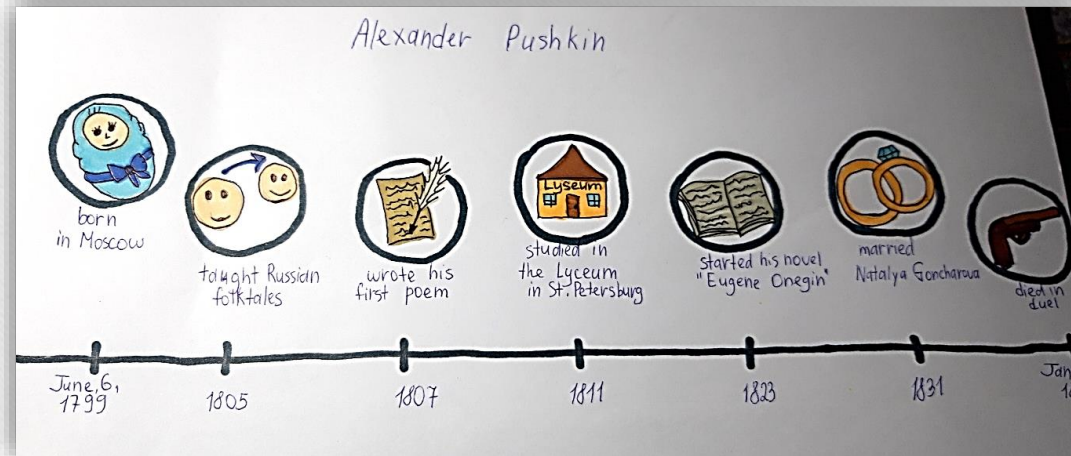 Alexander Pushkin
born
in Moscow
taught Russian
folktales
wrote his
first poem
Lyseum
studied in
the Lyceum
in St. Petersburg
started his novel
"Eugene Onegin"
married
Natalya Goncharova
died in
duel
June, 6,
1799
1805
1807
1811
1823
1831
Jan